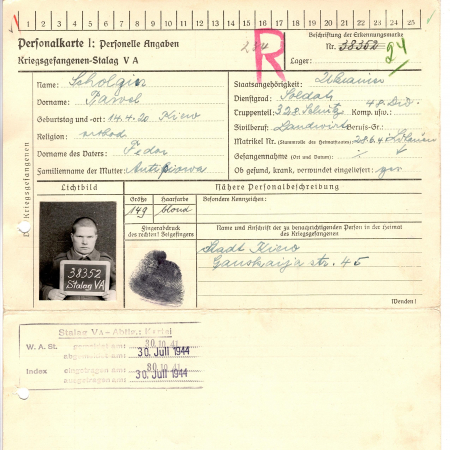 1 2 3 4 5 6 7 8 9 10 11 12 13 14 15 16 17 18 19 20 21 22 23 24 25
Personalkarte I: Personelle Angaben
Kriegsgefangenen-Stalag V A
R
Beschriftung der Erkennungsmarke
Nr. 38352
Lager:
24
Name:
Vorname: Pawel
Geburtstag und -ort: 14.4.20 Kiew
Religion: orthod.
Vorname des Vaters: Fedor
Familienname der Mutter:
Staatsangehörigkeit: Ukrainer
Dienstgrad: Soldat
Truppenteil: 328 Komp. usw.:
Zivilberuf: Landwirt Berufs-Gr.:
Matrikel Nr. (Stammrolle des Heimatstaates)
Gefangennahme (Ort und Datum):
Ob gesund, krank, verwundet eingeliefert:
Des Kriegsgefangenen
Lichtbild
38352
Stalag VA
Größe
Haarfarbe
149
blond
Fingerabdruck
des rechten! Zeigefingers
Nähere Personalbeschreibung
Besondere Kennzeichen:
Name und Anschrift der zu benachrichtigenden Person in der Heimat
des Kriegsgefangenen
Stadt Kiew
str. 45
Wenden!
Stalag VA - Abtlg.: Kartei
W. A. St. gemeldet am: 30.10.41
abgemeldet am: 30. Juli 1944
Index eingetragen am: 30.10.41
ausgetragen am: 30. Juli 1944